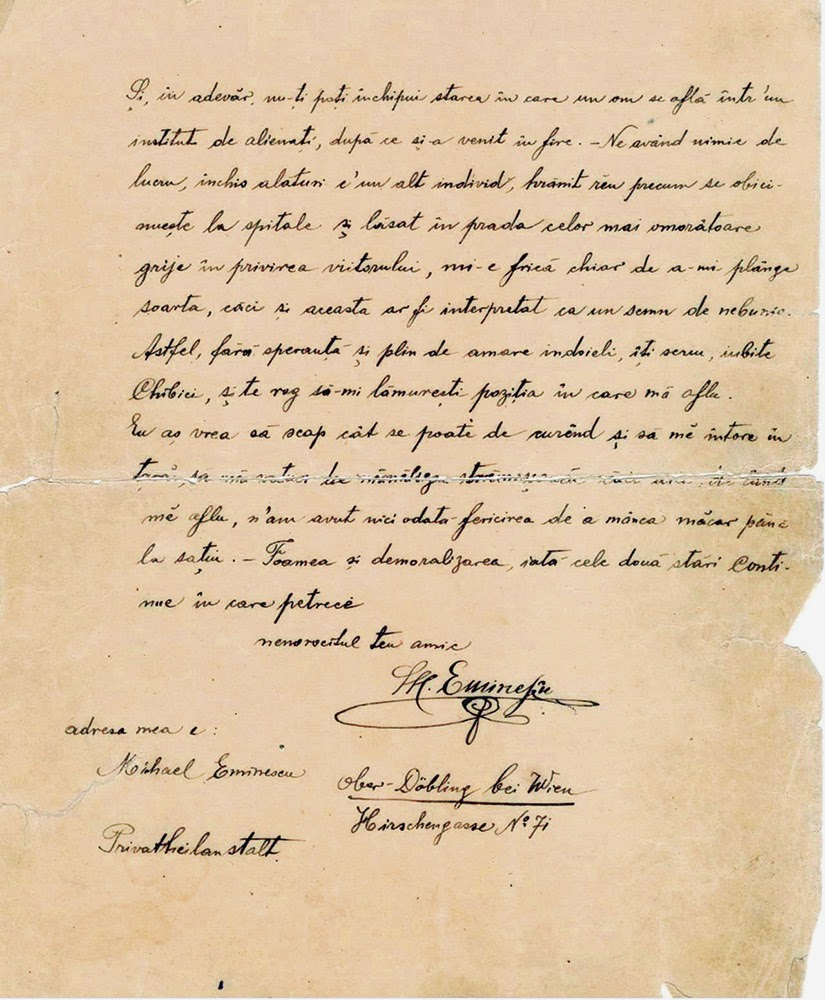 Și, în adevăr, nu-ți poți închipui starea în care un om se află într'un
institut de alienați, după ce și-a venit în fire. – Ne având nimic de
lucru, închis alaturi c'un alt individ, hrănit rĕu precum se obici-
nuește la spitale și lăsat în prada celor mai omorâtoare
grije în privirea viitorului, mi-e frică chiar de a-mi plânge
soarta, căci și aceasta ar fi interpretat ca un semn de nebunie.
Astfel, fără speranță și plin de amare indoieli, îți scriu, iubite
Chibici, și te rog să-mi lămurești poziția în care mă aflu.
Eu aș vrea să scap cât se poate de curênd și să mĕ întorc în
țară, să mă satur de mămăliga strămoșească căci aici, de când
mĕ aflu, n'am avut nici odata fericirea de a mânca măcar pâne
la sațiu. – Foamea și demoralizarea, iată cele două stări conti-
nue în care petrece
nenorocitul tĕu amic
M. Eminescu
adresa mea e:
Michael Eminescu
Ober-Döbling bei Wien
Hirschengasse Nº 71
Privatheilanstalt.